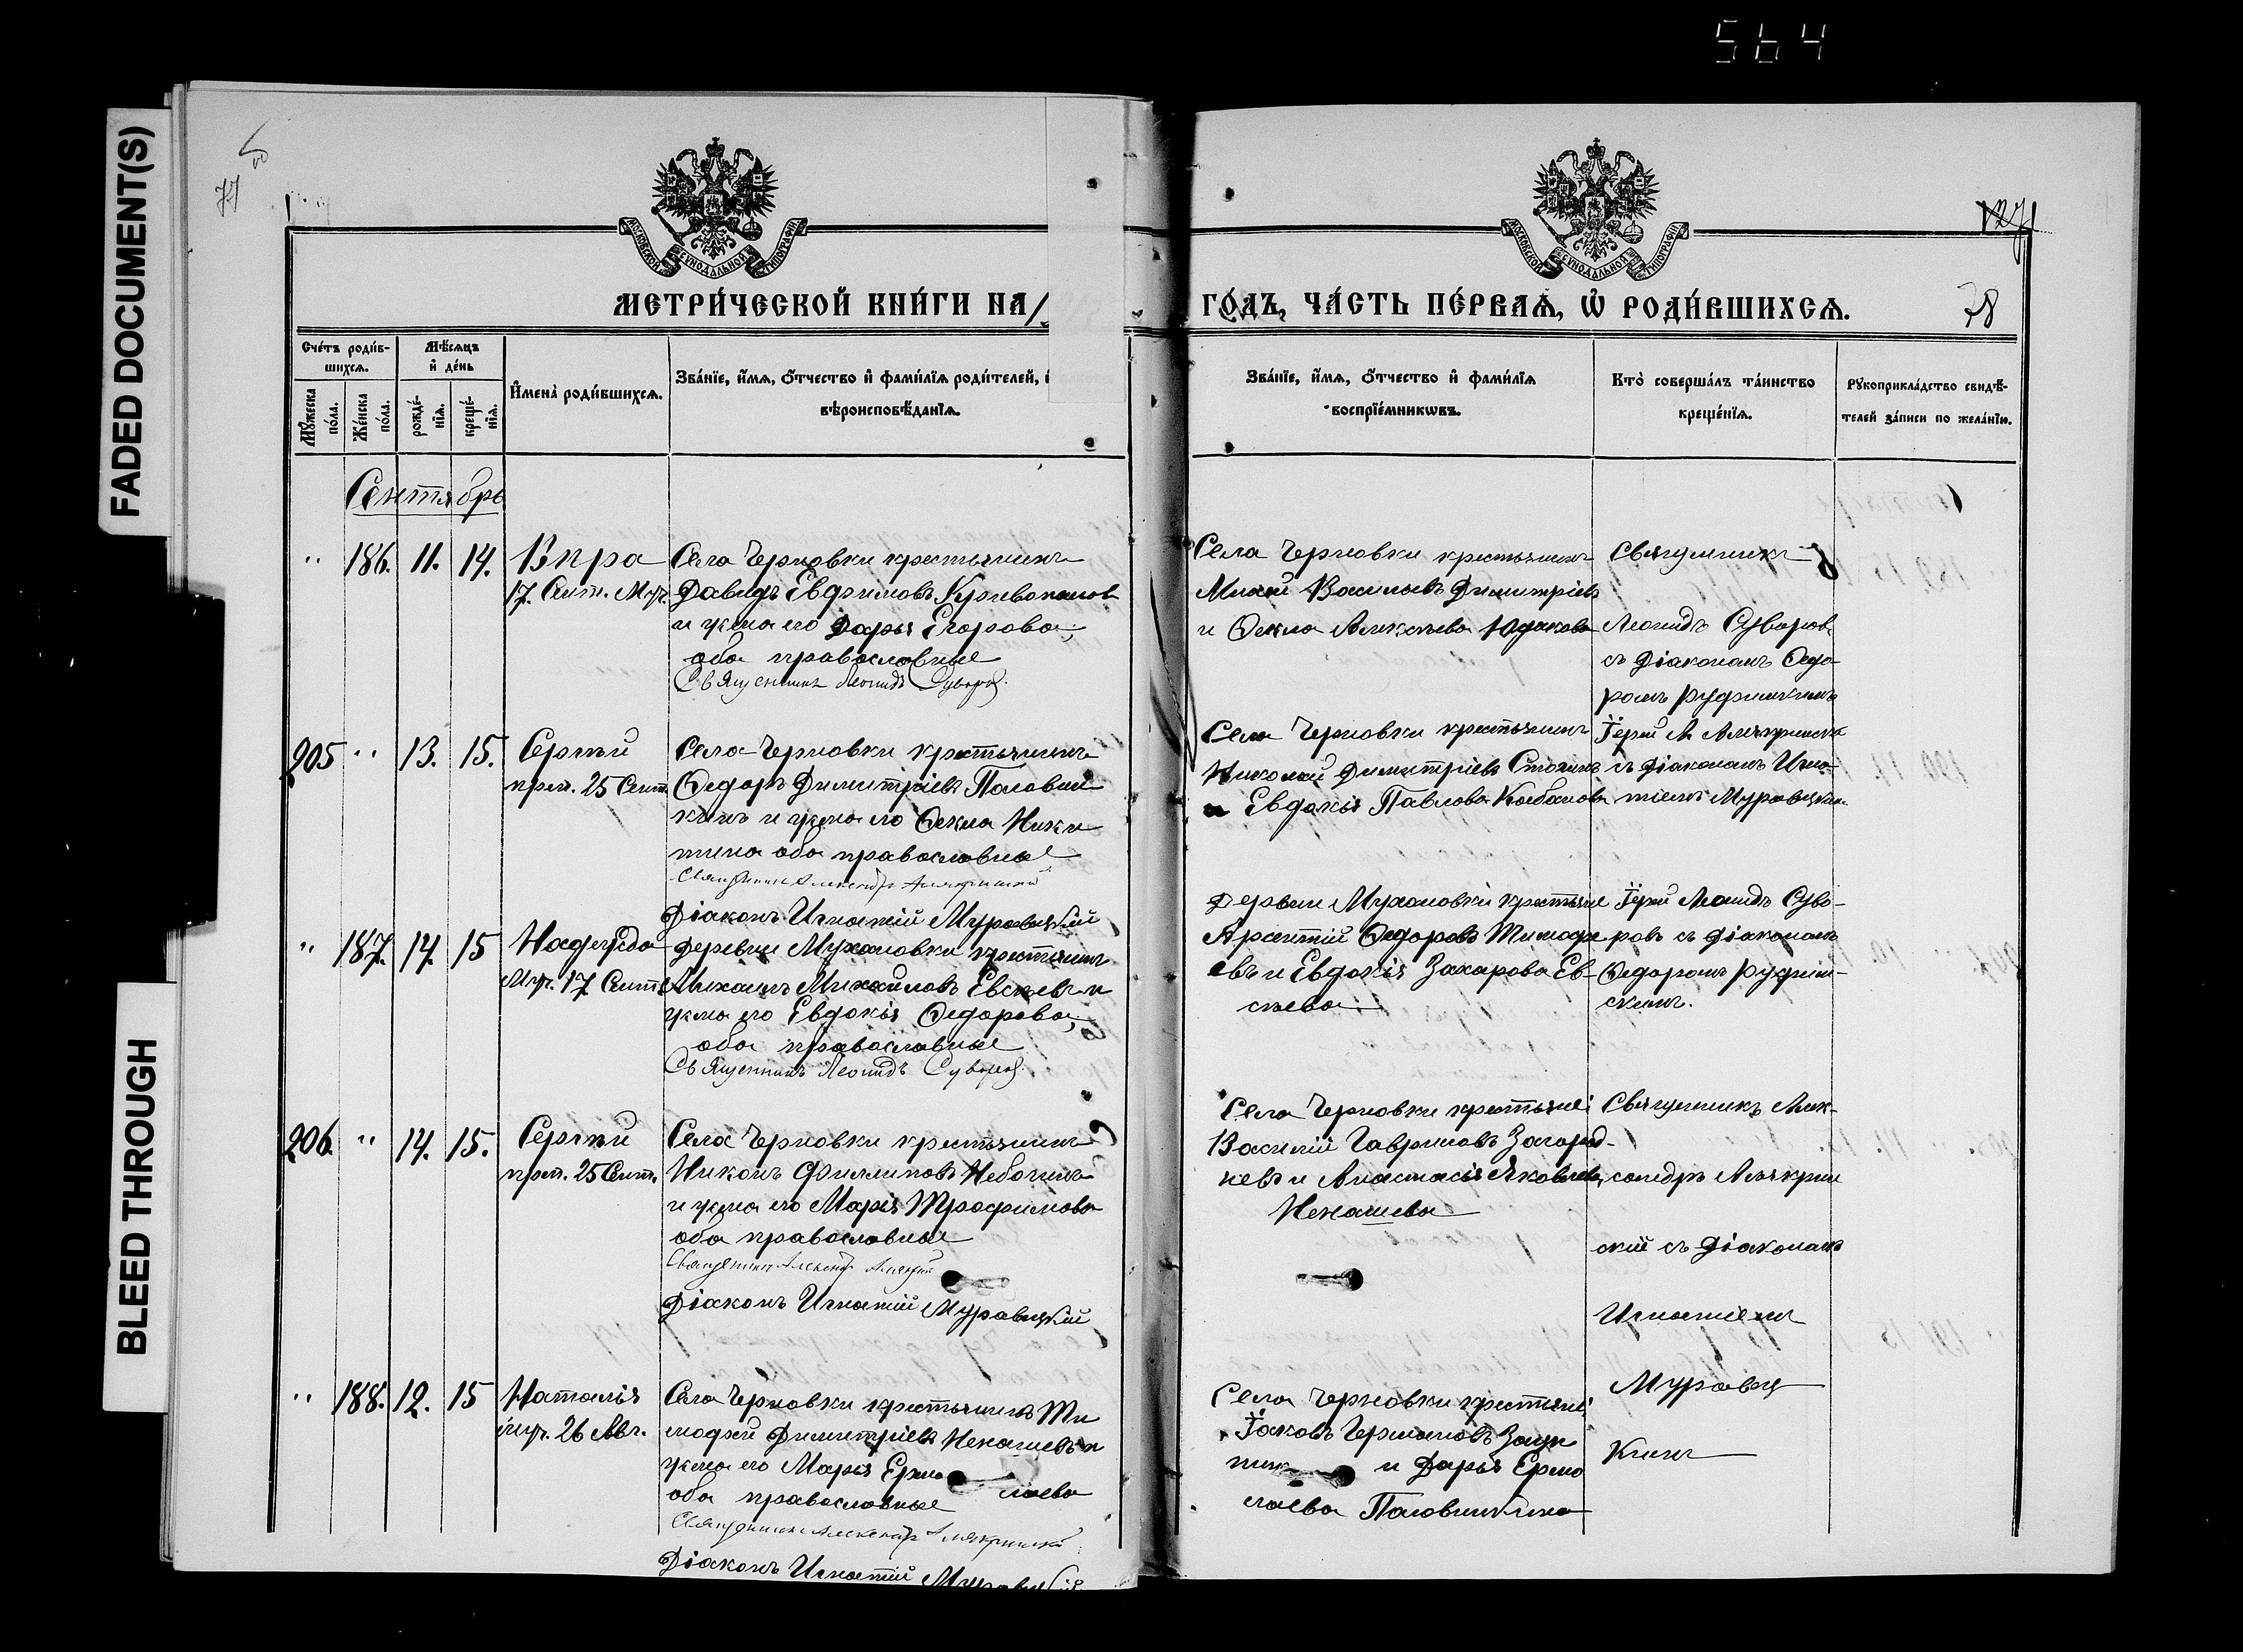 564
FADED DOCUMENT(S)
BLEED THROUGH
78
МОСКОВСКОЙ СѴНОДАЛЬНОЙ ТИПОГРАФІИ
МОСКОВСКОЙ СѴНОДАЛЬНОЙ ТИПОГРАФІИ
МЕТРИ́ЧЕСКОЙ КНИ́ГИ НА
ГО́ДЪ, ЧА́СТЬ ПЕ́РВАѦ, Ѡ҆ РОДИ́ВШИХСѦ.
Сче́тъ роди́в-
шихсѧ.
Мꙋжеска по́ла.
Же́нска по́ла.
Мѣ́сѧцъ
и҆ де́нь
рожде́-
нїѧ.
креще́-
нїѧ.
И҆мена̀ роди́вшихсѧ.
Зва́нїе, и҆́мѧ, ѻ҆́тчество и҆ фами́лїѧ роди́телей,
вѣроисповѣ́данїѧ.
Зва́нїе, и҆́мѧ, ѻ҆́тчество и҆ фами́лїѧ
воспрїе́мникѡвъ.
Кто̀ соверша́лъ та́инство
креще́нїѧ.
Рꙋкоприкла́дство свидѣ́-
телей за́писи по жела́нїю.
Сентябрь
" 186. 11. 14. Вѣра
17. Сент. Муч.
Села Черновки крестьянинъ
Давидъ Евфимовъ Кривопалов
и жена его Дарья Егорова,
оба православные
Священникъ Леонидъ Суворов.
Села Черновки крестьянинъ
Василевъ Димитріевъ
и Ѳекла Алексѣева Юдакова
Священникъ
Леонидъ Суворов
съ Діакономъ Ѳедо-
ромъ Руфимскимъ
205 " 13. 15. Сергѣй
преп. 25 Сент.
Села Черновки крестьянинъ
Ѳедоръ Димитріевъ Половин
кинъ и жена его Ѳекла Ники
тина оба православные
Священникъ Александръ Алякринскій
Діаконъ Игнатій Муравицкій
Села Черновки крестьянинъ
Николай Димитріевъ
и Евдокія Павлова Колбанова
Іерей А Алякринскій
съ Діакономъ Игна-
тіемъ Муравицким.
" 187. 14. 15 Надежда
Муч. 17 Сент.
деревни Мухановки крестьянинъ
Михаилъ Михайловъ Евсѣевъ и
жена его Евдокія Ѳедорова,
оба православные
Священникъ Леонидъ Суворов.
Деревни Мухановки крестьяне
Арсентій Ѳедоровъ Тимофе
евъ и Евдокія Захарова Ев-
сѣева
Іерей Леонидъ Суво-
ровъ съ Діакономъ
Ѳедоромъ Руфим-
скимъ.
206. " 14. 15. Сергѣй
преп. 25 Сент.
Села Черновки крестьянинъ
Никонъ Филлиповъ Небогинъ
и жена его Марія Трофимова
оба православные
Священникъ Александръ Алякринскій
Діаконъ Игнатій Муравицкій
Села Черновки крестьяне:
Василій Гавриловъ Загород-
невъ и Анастасія Яковлева
Ненашева
Священникъ Алек-
сандръ Алякрин
скій съ Діакономъ
Игнатіемъ
Муравиц
кимъ
" 188. 12. 15 Наталія
муч. 26 Авг.
Села Черновки крестьянинъ Ти
мофей Димитріевъ Ненашевъ и
жена его Марья Ермо лаева
оба православные
Священникъ Александръ Алякринскій
Діаконъ Игнатій Муравицкій
Села Черновки крестьяне:
Іаковъ Германовъ
и Дарья Ермо
лаева Половинкина